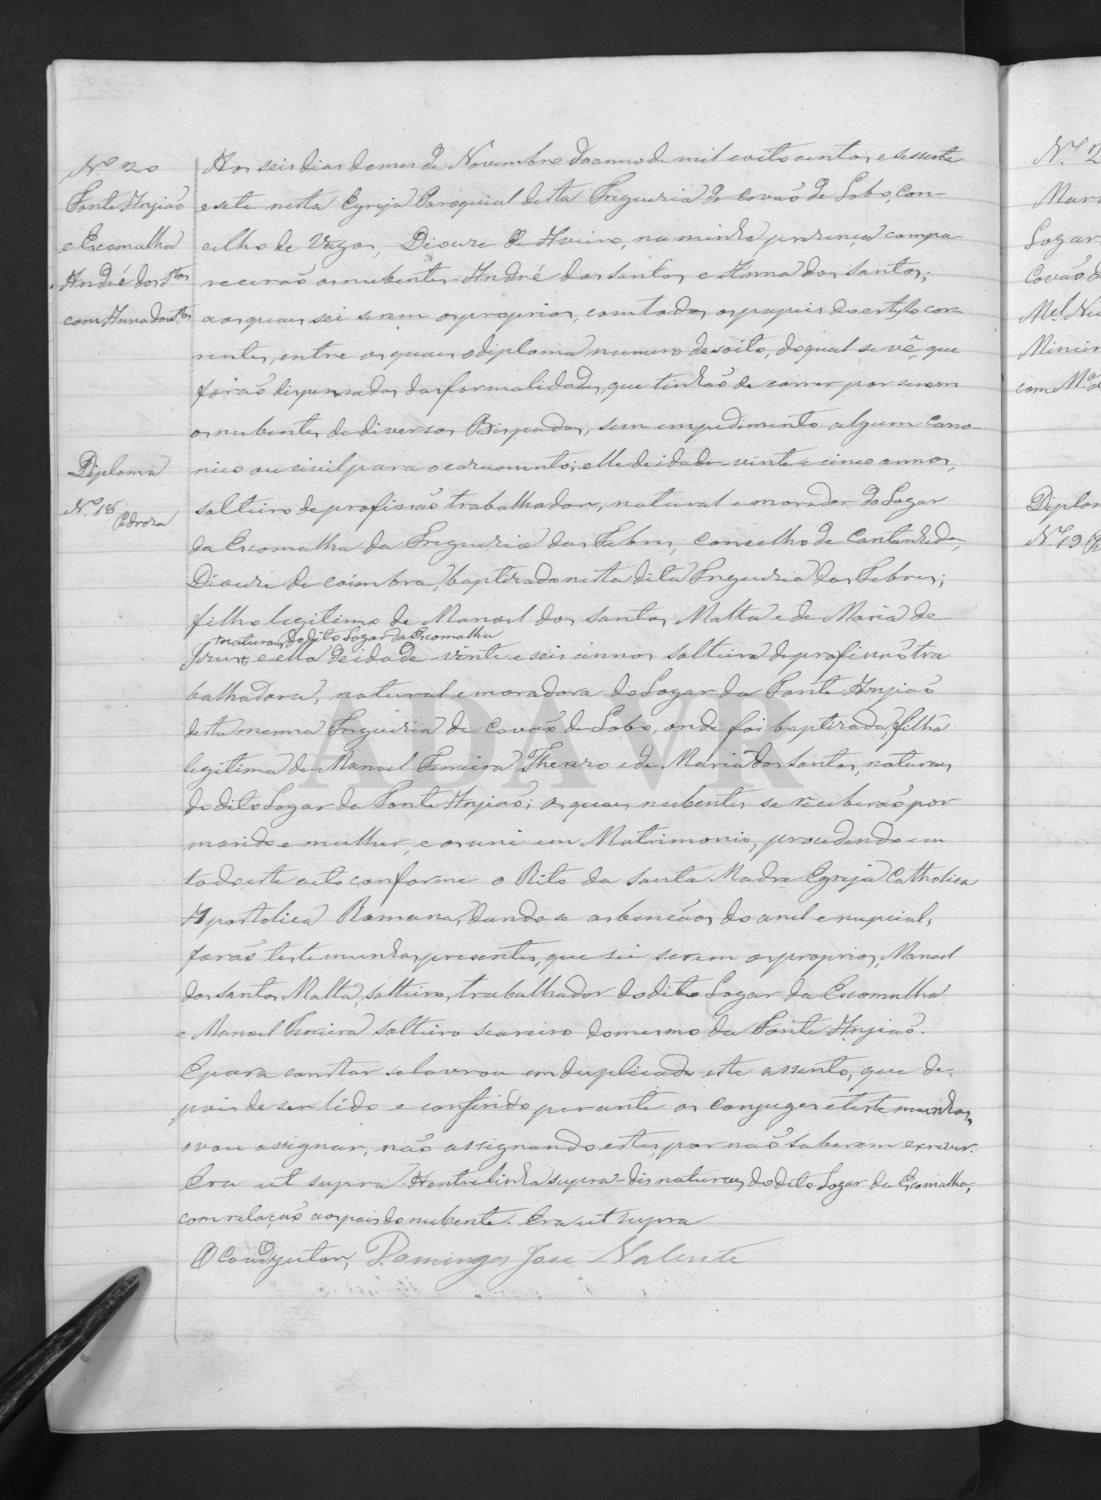 Nº 20
Ponte Anjião
e Escomalha
André dos Stos
com Anna dos Stos
Diploma
Nº 18
Pedroza
Aos seis dias do mes de Novembro do anno de mil e oito centos e sessenta
e sete nesta Egreja Paroquial desta Freguezia de Covão de Lobo, con-
celho de Vagos, Diocese de Aveiro, na minha presença compa-
recerão os nubentes André dos Santos e Anna dos Santos;
aos quaes sei serem os proprios, com todos os papeis do estylo cor-
rentes, entre os quaes o diploma numero desoito, do qual se vê que
forão dispensados das formalidades, que tinhão de correr por serem
os nubentes de diversos Bispados, sem impedimento algum cano-
nico ou civil para o cazamento; elle de idade vinte e cinco annos,
solteiro de profissão trabalhador, natural e morador do Logar
da Escomalha da Freguezia das Febres, Concelho de Cantanhede,
Diocese de Coimbra, baptizado nesta dita Freguezia das Febres;
filho legitimo de Manoel dos Santos Malta e de Maria de
naturaes do dito Logar da Escomalha
Jezus, e ella de idade vinte e seis annos solteira de profissão tra
balhadora, natural e moradora do Logar da Ponte Anjião
desta mesma Freguezia de Covão de Lobo, onde foi baptizada, filha
legitima de Manoel Ferreira Theszo e de Maria dos Santos, naturaes
do dito Logar da Ponte Anjião; os quaes nubentes se receberão por
marido e mulher, e os uni em Matrimonio, procedendo em
todo este acto conforme o Rito da Santa Madre Egreja Catholica
Apostolica Romana, dando as bençãos do anel e nupcial,
forão testemunhas presentes, que sei serem os proprios, Manoel
dos Santos Malta, solteiro, trabalhador do dito Logar da Escomalha
e Manoel Ferreira solteiro seareiro do mesmo da Ponte Anjião.
E para constar se lavrou em duplicado este assento, que de-
pois de ser lido e conferido perante os conjuges e testemunhas,
o vou assignar, não assignando estes, por não saberem escrever.
Era ut supra. A entrelinha supra - diz naturaes do dito Logar da Escomalha,
com relação aos pais do nubente. Era ut supra
O Coadjutor, Domingos Jose Valente
Nº 2
Mari
Logar
Covão d
Mel Nu
com Mª d
Diplom
Nº 19
ADAVR